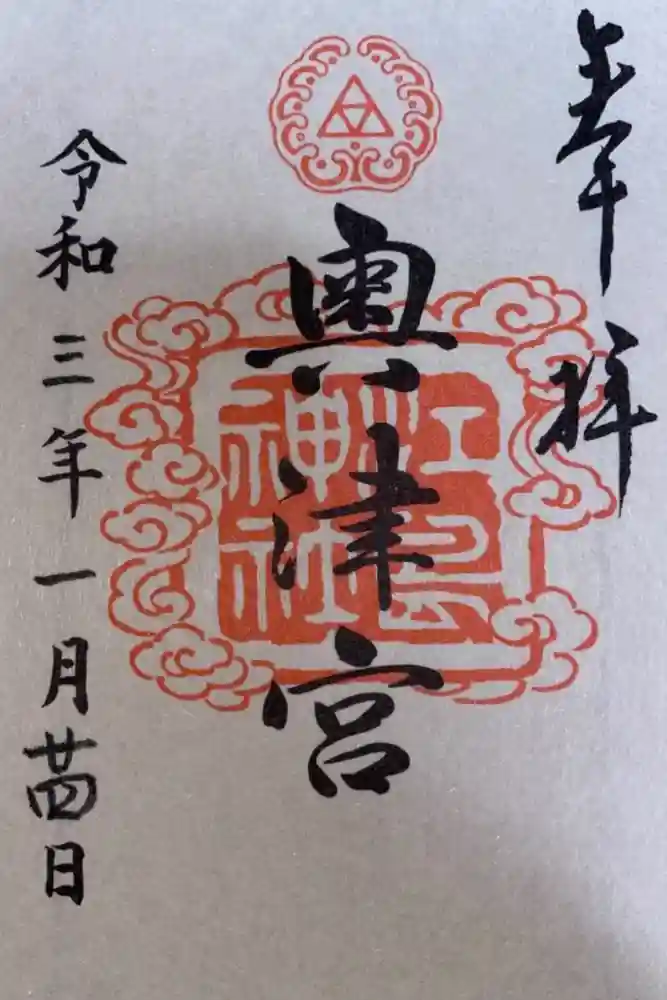 奉拝
奥津宮
江島神社
令和三年一月廿四日